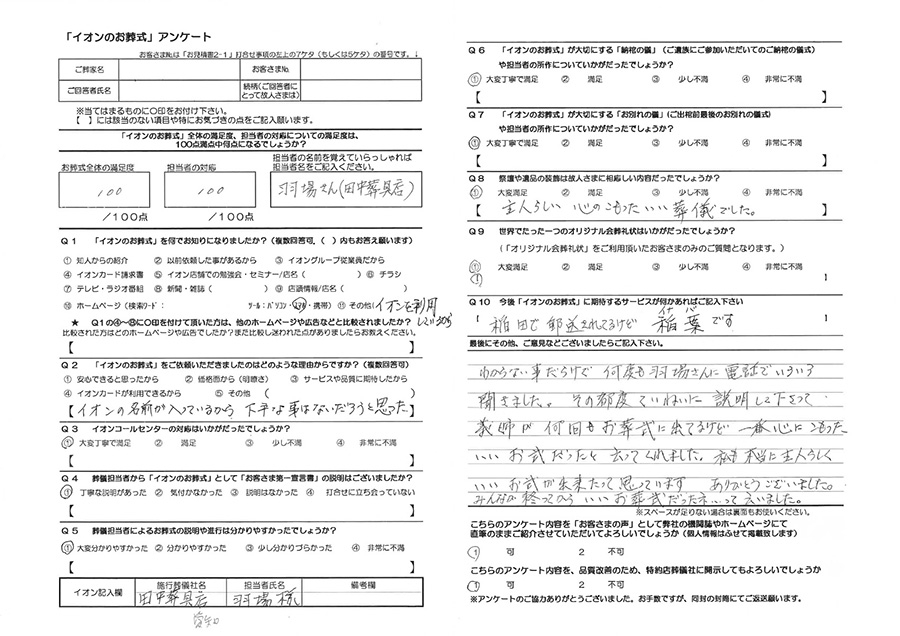 「イオンのお葬式」アンケート
お客さま№は「お見積書2-1」打合せ事項の左上の7ケタ（もしくは5ケタ）の番号です。↓
ご葬家名
お客さま№
ご回答者氏名
続柄（ご回答者にとって故人さまは）
※当てはまるものに○印をお付け下さい。
【　】には該当のない項目や特にお気づきの点をご記入願います。
「イオンのお葬式」全体の満足度、担当者の対応についての満足度は、
100点満点中何点になるでしょうか？
お葬式全体の満足度
担当者の対応
担当者の名前を覚えていらっしゃれば
担当者名をご記入ください。
100
100
羽場さん(田中葬具店)
／100点
／100点
Q１　「イオンのお葬式」を何でお知りになりましたか？（複数回答可、（　）内もお答え願います）
① 知人からの紹介　② 以前依頼した事があるから　③ イオングループ従業員だから
④ イオンカード請求書　⑤ イオン店舗での勉強会・セミナー/店名（　）⑥ チラシ
⑦ テレビ・ラジオ番組　⑧ 新聞・雑誌（　）⑨ 店頭情報/店名（　）
⑩ ホームページ（検索ワード：　ツール：パソコン・スマホ・携帯）⑪ その他(イオンを利用
している から
★　Q1の④〜⑧に○印を付けて頂いた方は、他のホームページや広告などと比較されましたか？
比較された方はどのホームページや広告でしたか？また比較し迷われた点がありましたらお教えください。
【　】
Q２　「イオンのお葬式」をご依頼いただきましたのはどのような理由からですか？（複数回答可）
① 安心できると思ったから　② 価格面から（明瞭さ）　③ サービスや品質に期待したから
④ イオンカードが利用できるから　⑤ その他　(　)
【イオンの名前が入っているから 下手な事はないだろうと思った】
Q３　イオンコールセンターの対応はいかがだったでしょうか？
① 大変丁寧で満足　② 満足　③ 少し不満　④ 非常に不満
【　】
Q４　葬儀担当者から「イオンのお葬式」として「お客さま第一宣言書」の説明はございましたか？
① 丁寧な説明があった　② 気付かなかった　③ 説明はなかった　④ 打合せに立ち会っていない
【　】
Q５　葬儀担当者によるお葬式の説明や進行は分かりやすかったでしょうか？
① 大変分かりやすかった　② 分かりやすかった　③ 少し分かりづらかった　④ 非常に不満
【　】
イオン記入欄
施行葬儀社名
担当者氏名
備考欄
田中葬具店
羽場 様
愛知
Q６　「イオンのお葬式」が大切にする「納棺の儀」（ご遺族にご参加いただいてのご納棺の儀式）
や担当者の所作についていかがだったでしょうか？
① 大変丁寧で満足　② 満足　③ 少し不満　④ 非常に不満
【　】
Q７　「イオンのお葬式」が大切にする「お別れの儀」（ご出棺前最後のお別れの儀式）
や担当者の所作についていかがだったでしょうか？
① 大変丁寧で満足　② 満足　③ 少し不満　④ 非常に不満
【　】
Q８　祭壇や遺品の装飾は故人さまに相応しい内容だったでしょうか？
① 大変満足　② 満足　③ 少し不満　④ 非常に不満
【 主人らしい 心のこもった いい 葬儀でした。】
Q９　世界でたった一つのオリジナル会葬礼状はいかがだったでしょうか？
（「オリジナル会葬礼状」をご利用頂いたお客さまのみのご質問となります。）
① 大変満足　② 満足　③ 少し不満　④ 非常に不満
Q10　今後「イオンのお葬式」に期待するサービスが何かあればご記入下さい
イナバ
稲田で 郵送されてるけど 稲葉です
最後にその他、ご意見などございましたらご記入下さい。
わからない事だらけで 何度も羽場さんに 電話でいろいろ
聞きました。その都度 ていねいに 説明して下さって
義姉が 何回もお葬式に出てるけど 一番心にこもった
いい お式だったと 言ってくれました。私も 本当に主人らしく
いい お式が出来たって思っています ありがとうございました。
みんなが 終ってから いい お葬式だったネ…って言いました。
※スペースが足りない場合は裏面もお使いください。
こちらのアンケート内容を「お客さまの声」として弊社の機関誌やホームページにて
直筆のままご紹介させていただいてよろしいでしょうか（個人情報はふせて掲載致します）
1　可　2　不可
こちらのアンケート内容を、品質改善のため、特約店葬儀社に開示してもよろしいでしょうか
1　可　2　不可
※アンケートのご協力ありがとうございました。お手数ですが、同封の封筒にてご返送願います。